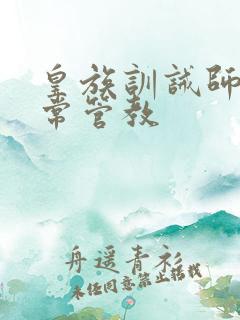 皇族訓誡師日
常管教
舟遥青衫
未经同意禁止搭载